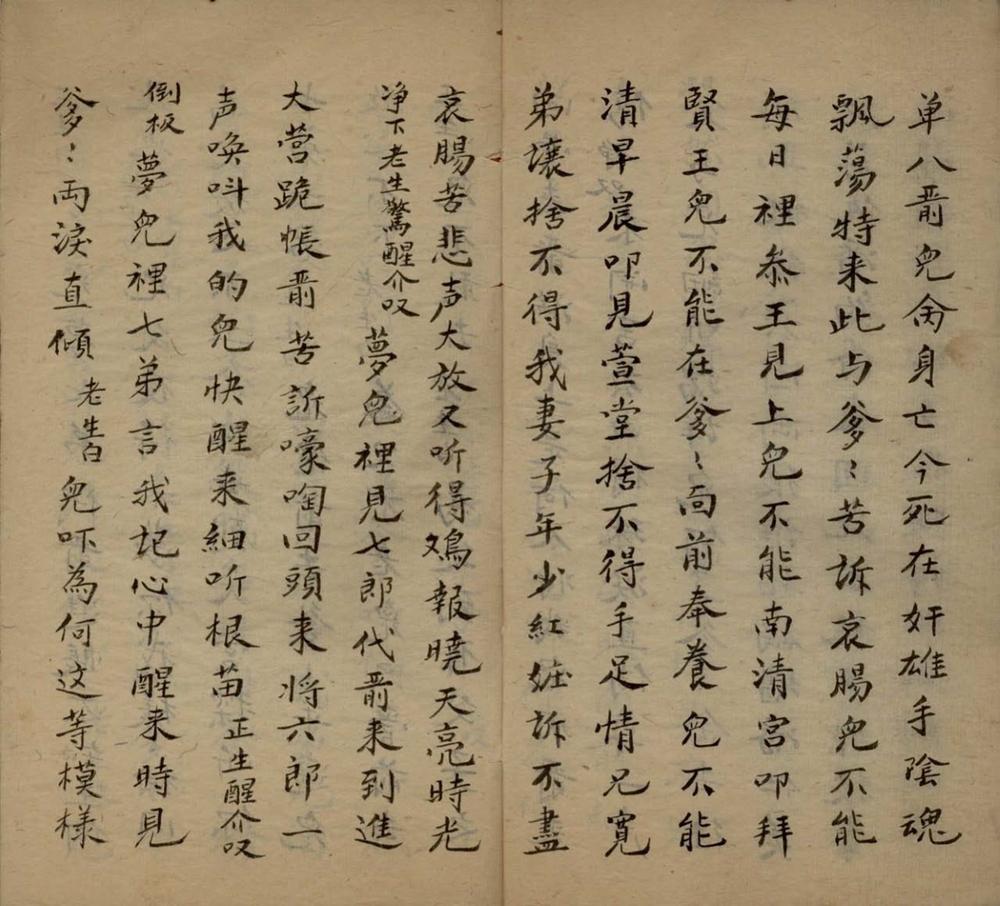 单八箭兒禽身亡今死在奸雄手陰魂
飄蕩特来此与爹〻苦訴哀腸兒不能
每日裡叅王見上兒不能南清宮叩拜
賢王兒不能在爹〻面前奉養兒不能
清早晨叩見萱堂捨不得手足情兄寬
弟讓捨不得我妻子年少紅粧訴不盡
哀腸苦悲声大放又听得鳷報曉天亮時光
净下老生驚醒介叹夢兒裡見七郎代箭来到進
大营跪帳前苦訴嚎啕回頭来将六郎一
声唤呌我的兒快醒来細听根苗正生醒介叹
倒板夢兒裡七弟言我記心中醒来時見
爹〻両淚直傾老生白兒吓為何这等模樣